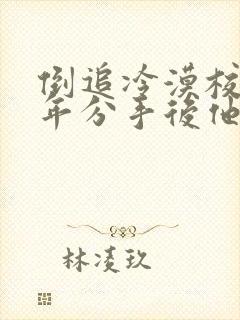 倒追冷漠校
年分手後他
林凌玖